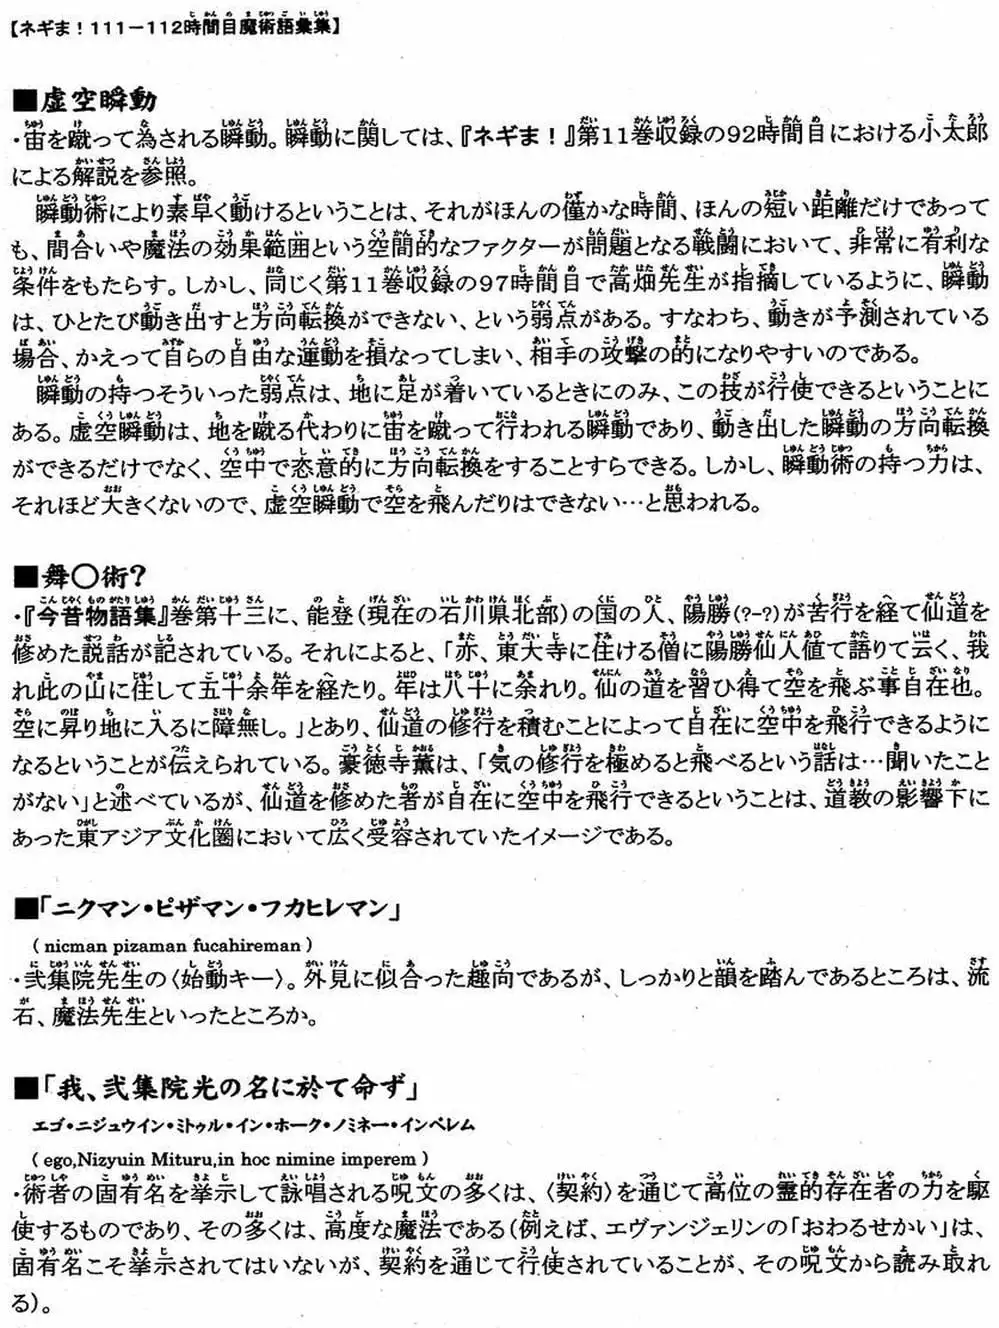 【ネギま！111－112時間目魔術語彙集】
■虚空瞬動
・宙を蹴って為される瞬動。瞬動に関しては、『ネギま！』第11巻収録の92時間目における小太郎
による解説を参照。
瞬動術により素早く動けるということは、それがほんの僅かな時間、ほんの短い距離だけであって
も、間合いや魔法の効果範囲という空間的なファクターが問題となる戦闘において、非常に有利な
条件をもたらす。しかし、同じく第11巻収録の97時間目で高畑先生が指摘しているように、瞬動
は、ひとたび動き出すと方向転換ができない、という弱点がある。すなわち、動きが予測されている
場合、かえって自らの自由な運動を損なってしまい、相手の攻撃の的になりやすいのである。
瞬動の持つそういった弱点は、地に足が着いているときにのみ、この技が行使できるということに
ある。虚空瞬動は、地を蹴る代わりに宙を蹴って行われる瞬動であり、動き出した瞬動の方向転換
ができるだけでなく、空中で恣意的に方向転換をすることすらできる。しかし、瞬動術の持つ力は、
それほど大きくないので、虚空瞬動で空を飛んだりはできない…と思われる。
■舞〇術？
・『今昔物語集』巻第十三に、能登（現在の石川県北部）の国の人、陽勝（?-?）が苦行を経て仙道を
修めた説話が記されている。それによると、「亦、東大寺に住ける僧に陽勝仙人値て語りて云く、我
れ此の山に住して五十余年を経たり。年は八十に余れり。仙の道を習ひ得て空を飛ぶ事自在也。
空に昇り地に入るに障無し。」とあり、仙道の修行を積むことによって自在に空中を飛行できるように
なるということが伝えられている。豪徳寺薫は、「気の修行を極めると飛べるという話は…聞いたこと
がない」と述べているが、仙道を修めた者が自在に空中を飛行できるということは、道教の影響下に
あった東アジア文化圏において広く受容されていたイメージである。
■「ニクマン・ピザマン・フカヒレマン」
( nicman pizaman fucahireman )
・弐集院先生の〈始動キー〉。外見に似合った趣向であるが、しっかりと韻を踏んであるところは、流
石、魔法先生といったところか。
■「我、弐集院光の名に於て命ず」
エゴ・ニジュウイン・ミトゥル・イン・ホーク・ノミネー・インペレム
( ego,Nizyuin Mituru,in hoc nimine imperem )
・術者の固有名を挙示して詠唱される呪文の多くは、〈契約〉を通じて高位の霊的存在者の力を駆
使するものであり、その多くは、高度な魔法である（例えば、エヴァンジェリンの「おわるせかい」は、
固有名こそ挙示されてはいないが、契約を通じて行使されていることが、その呪文から読み取れ
る）。